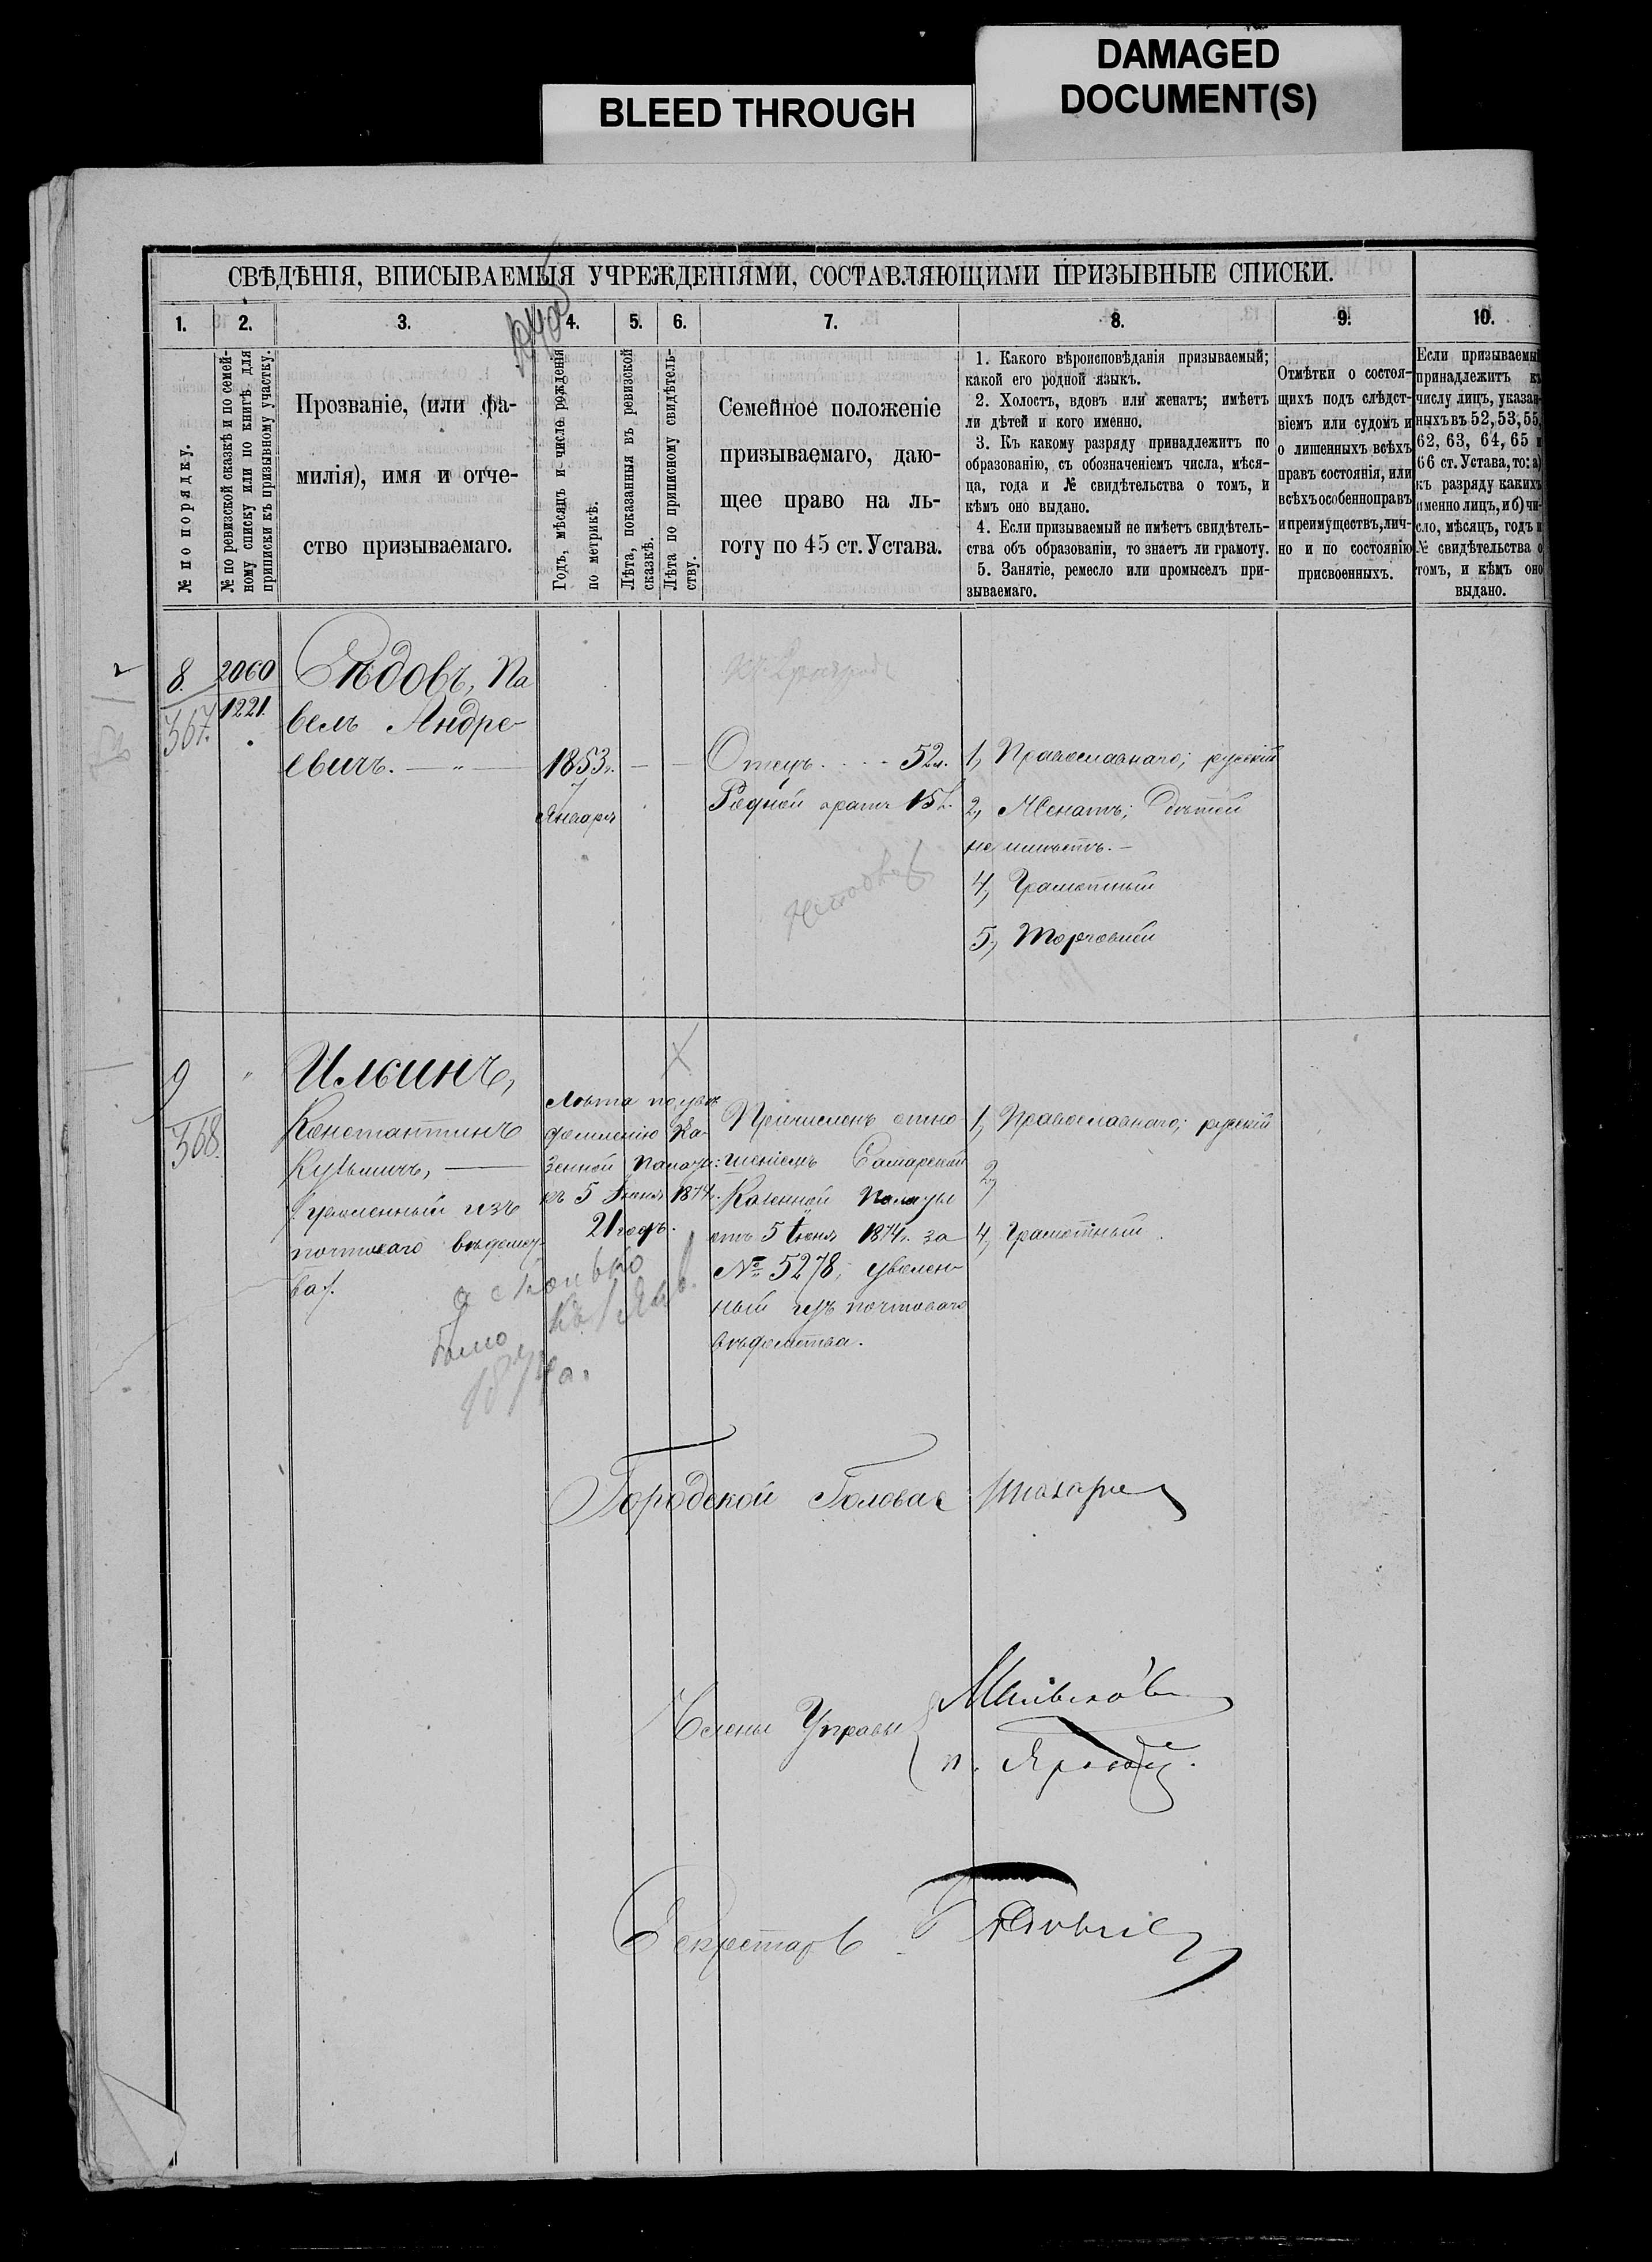 DAMAGED
DOCUMENT(S)
BLEED THROUGH
СВѢДѢНІЯ, ВПИСЫВАЕМЫЯ УЧРЕЖДЕНІЯМИ, СОСТАВЛЯЮЩИМИ ПРИЗЫВНЫЕ СПИСКИ.
1. 2. 3. 4. 5. 6. 7. 8. 9. 10.
№ по порядку.
№ по ревизской сказкѣ и по семей-
ному списку или по книгѣ для
приписки къ призывному участку.
Прозваніе, (или фа-
милія), имя и отче-
ство призываемаго.
Годъ, мѣсяцъ и число рожденія
по метрикѣ.
Лѣта, показанныя въ ревизской
сказкѣ.
Лѣта по приписному свидѣтель-
ству.
Семейное положеніе
призываемаго, даю-
щее право на ль-
готу по 45 ст. Устава.
1. Какого вѣроисповѣданія призываемый;
какой его родной языкъ.
2. Холостъ, вдовъ или женатъ; имѣетъ
ли дѣтей и кого именно.
3. Къ какому разряду принадлежитъ по
образованію, съ обозначеніемъ числа, мѣся-
ца, года и № свидѣтельства о томъ, и
кѣмъ оно выдано.
4. Если призываемый не имѣетъ свидѣтель-
ства объ образованіи, то знаетъ ли грамоту.
5. Занятіе, ремесло или промыселъ при-
зываемаго.
Отмѣтки о состоя-
щихъ подъ слѣдст-
віемъ или судомъ и
о лишенныхъ всѣхъ
правъ состоянія, или
всѣхъ особенно правъ
и преимуществъ, лич-
но и по состоянію
присвоенныхъ.
Если призываемый
принадлежитъ къ
числу лицъ, указан-
ныхъ въ 52, 53, 55,
62, 63, 64, 65 и
66 ст. Устава, то: а)
къ разряду какихъ
именно лицъ, и б) чи-
сло, мѣсяцъ, годъ и
№ свидѣтельства о
томъ, и кѣмъ оно
выдано.
8.
367.
2060
1221.
Сѣдовъ, Па
велъ Андре-
евичъ. — „ —
1853 г.
7
Января
Отецъ . . . . 52 л.
Родной братъ 15 л.
1, Православнаго; русскій
2, Женатъ; дѣтей
не имѣетъ. —
4, Грамотный
5, Торговлей
9
368.
„
Ильинъ,
Константинъ
Кузьмичъ, —
/уволенный изъ
почтоваго вѣдомст-
ва/.
Лѣта по увѣ
домленію Ка-
зенной Палаты:
къ 5 Іюня 1874 г.
21 годъ.
а сколько
было къ 1 Янв.
1874 а.
Причисленъ отно-
шеніемъ Самарской
Казенной Палаты
отъ 5 Іюня 1874 г. за
№ 5278, уволен-
ный изъ почтоваго
вѣдомства.
1, Православнаго; русскій
2,
4, Грамотный.
Городской Голова
Члены Управы
Секретарь